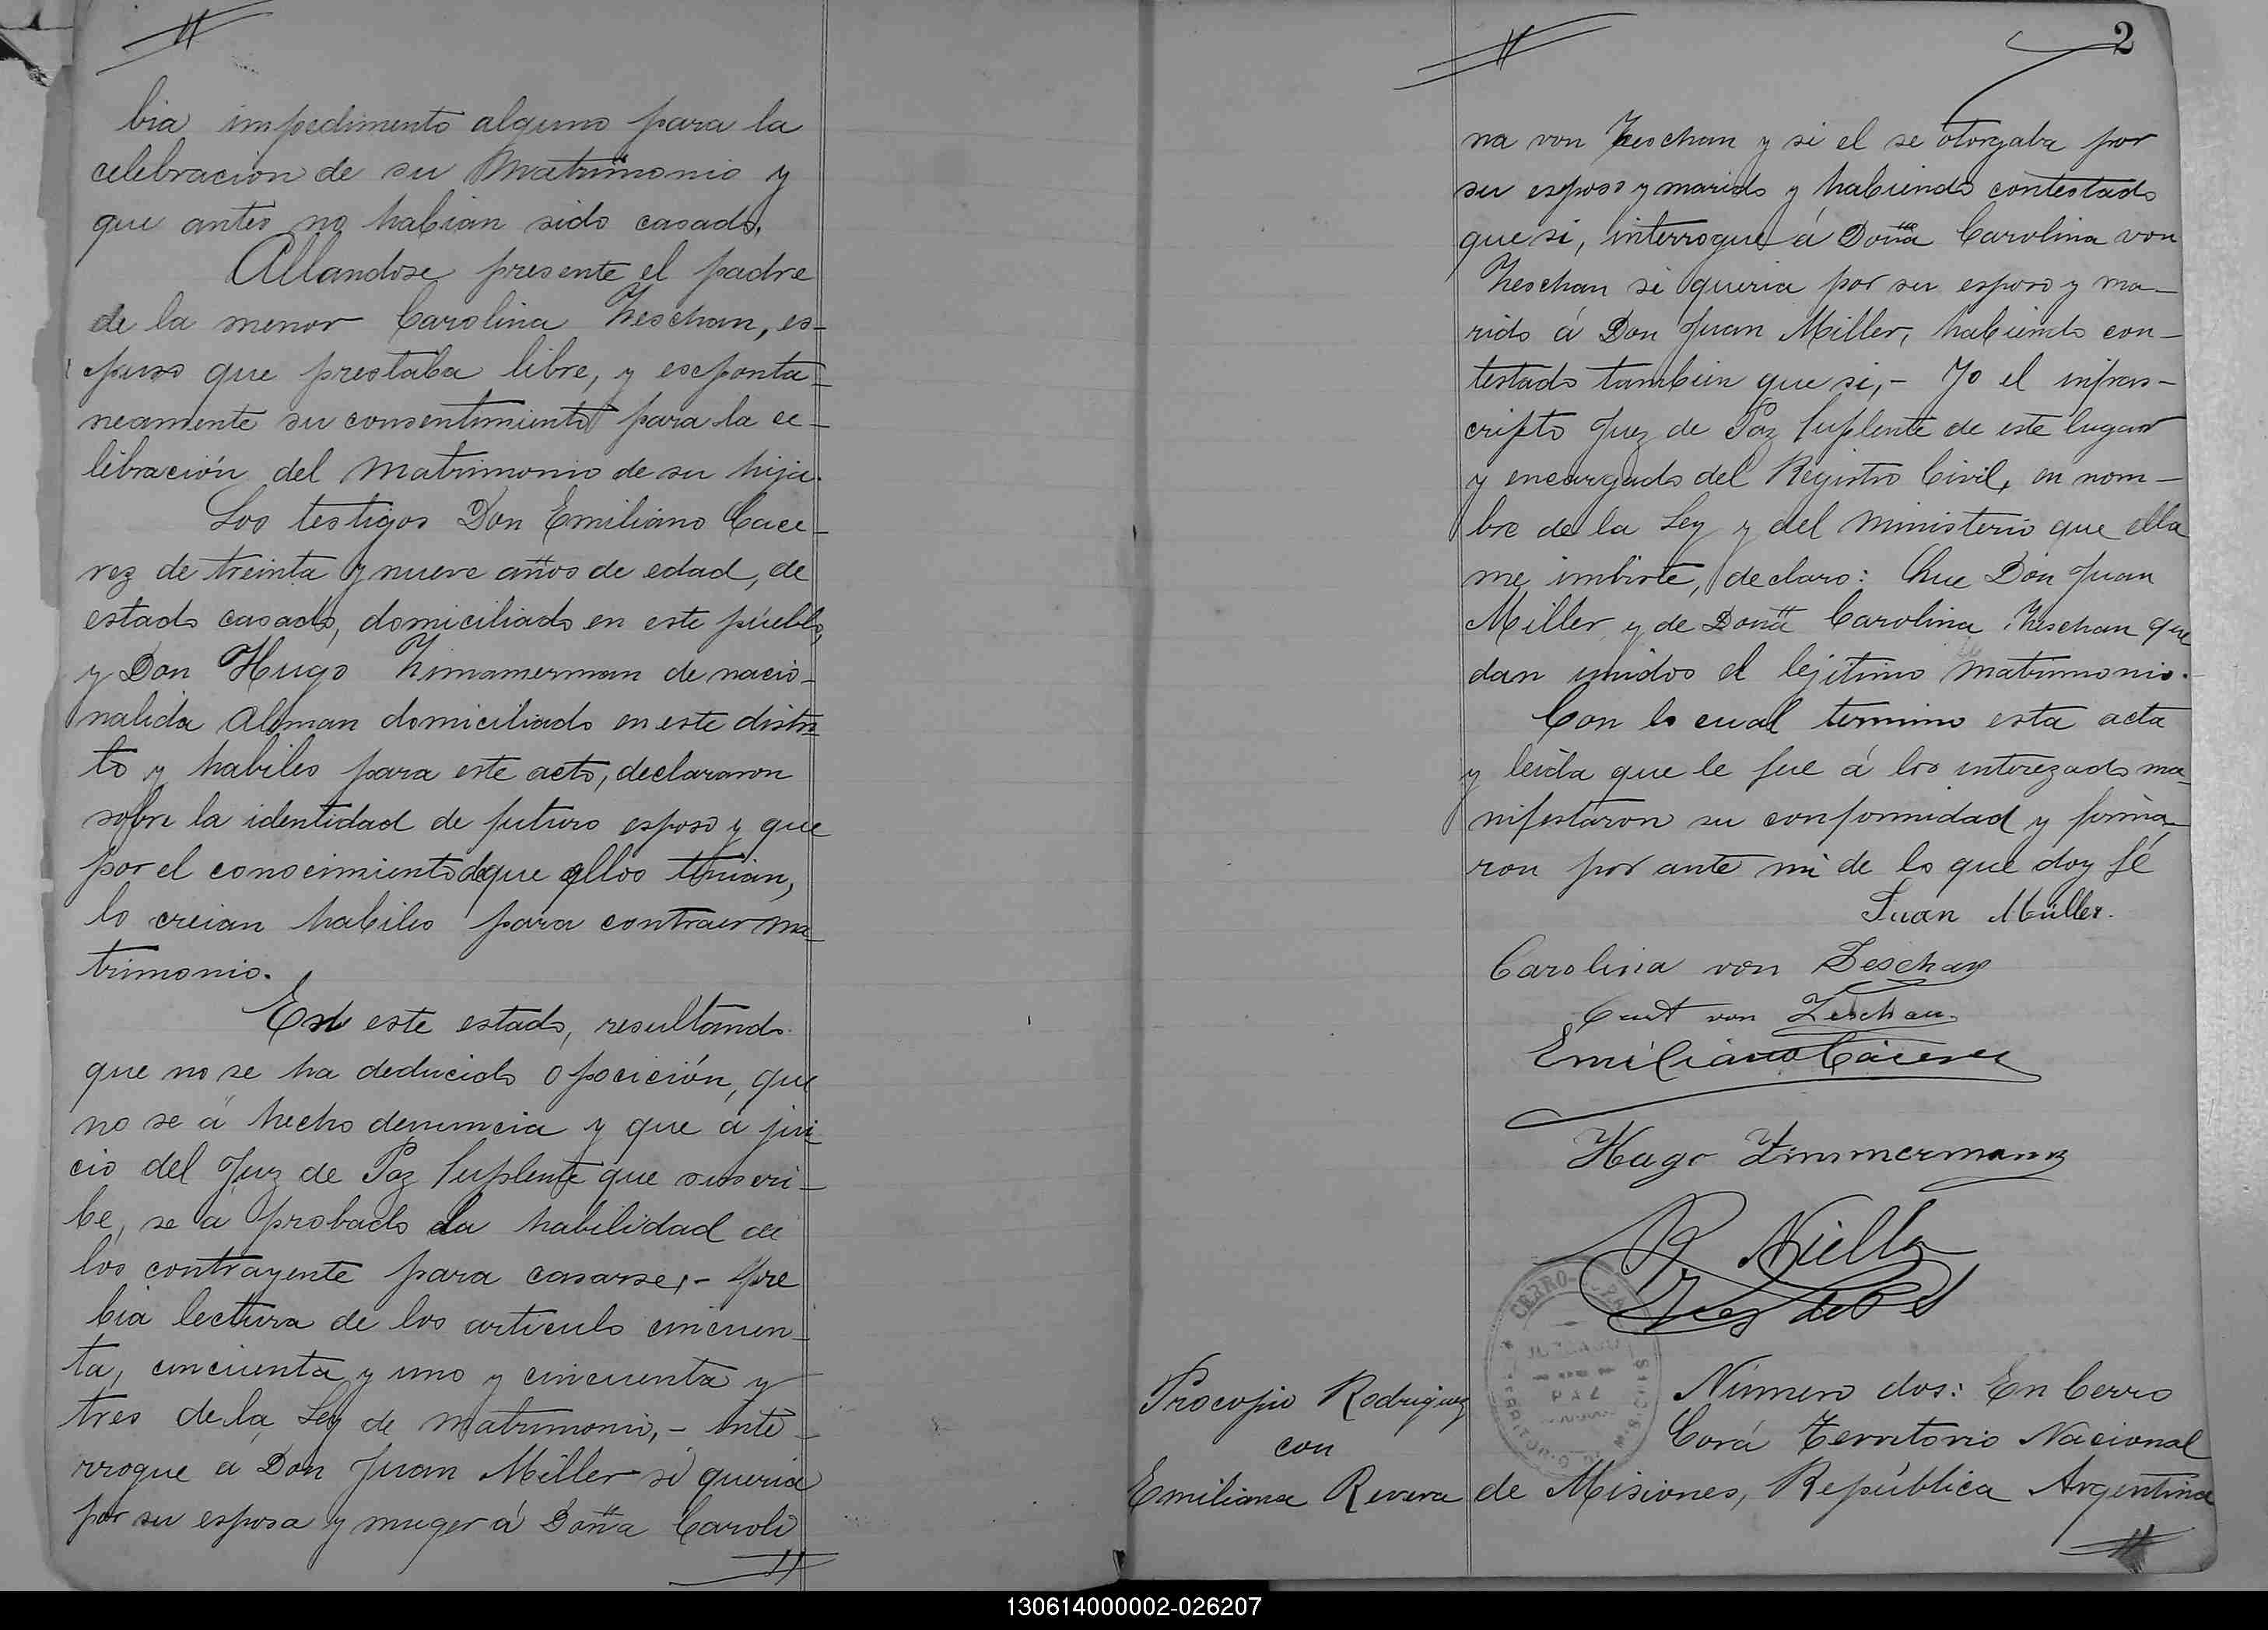 bia impedimento alguno para la
celebracion de su Matrimonio y
que antes no habian sido casado.
Allandose presente el padre
de la menor Carolina Zeschan, es-
puso que prestaba libre, y esponta-
neamente su consentimiento para la ce-
libración del Matrimonio de su hija.
Los testigos Don Emiliano Cace-
rez de treinta y nueve años de edad, de
estado casado, domiciliado en este pueblo,
y Don Hugo Zimamerman de nacio-
nalida Aleman domiciliado en este distri-
to y habiles para este acto, declararon
sobre la identidad de futuro esposo y que
por el conocimiento que ellos tenian,
lo creian habiles para contraer ma-
trimonio.
En este estado, resultando
que no se ha deducido oposición, que
no se á hecho denuncia y que á jui-
cio del Juz de Paz Suplente que suscri-
be, se a probado la habilidad de
los contrayente para casarse,- pre
bia lectura de los articulo cincuen-
ta, cincuenta y uno y cincuenta y
tres de la Ley de Matrimonio,- inte-
rroque a Don Juan Miller si queria
por su esposa y muger á Doña Caroli
2
na von Zeschan y si el se otorgaba por
su esposo y marido y habiendo contestado
que si, interroque á Doña Carolina von
Zeschan si queria por su esposo y ma-
rido á Don Juan Miller, habiendo con-
testado tambien que si,- Yo el infras-
cripto Juez de Paz Suplente de este lugar
y encargado del Registro Civil, en nom-
bre de la Ley y del ministerio que ella
me imbirte, declaro: Que Don Juan
Miller y de Doña Carolina Zeschan que
dan unidos el lejitimo matrimonio.
Con lo cual termino esta acta
y leida que le fue á los interezado ma-
nifestaron su conformidad y firma-
ron por ante mi de lo que doy fé
Juan Müller.
Carolina von Zeschau
Curt von Zeschau
Emiliano Cáceres
Hugo Zimmermann
R Niella
Juez de P S
CERRO-CORA
Procopio Rodriguez
con
Emiliana Rivera
Número dos: En Cerro
Corá Territorio Nacional
de Misiones, República Argentina
130614000002-026207